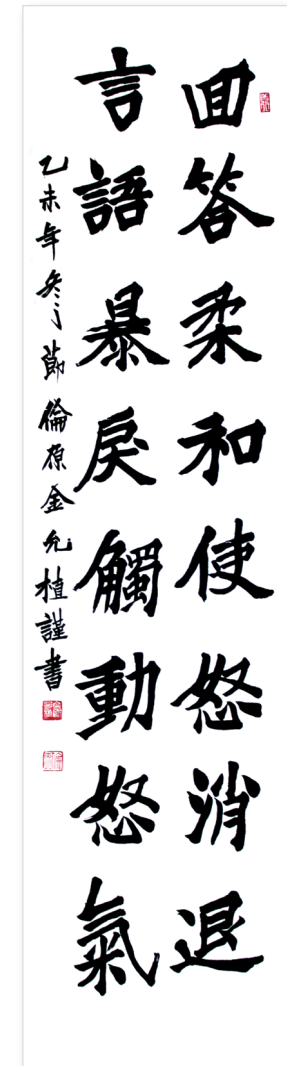 回答柔和使怒消退
言語暴戾觸動怒氣
乙未年冬節 倫原金允植謹書